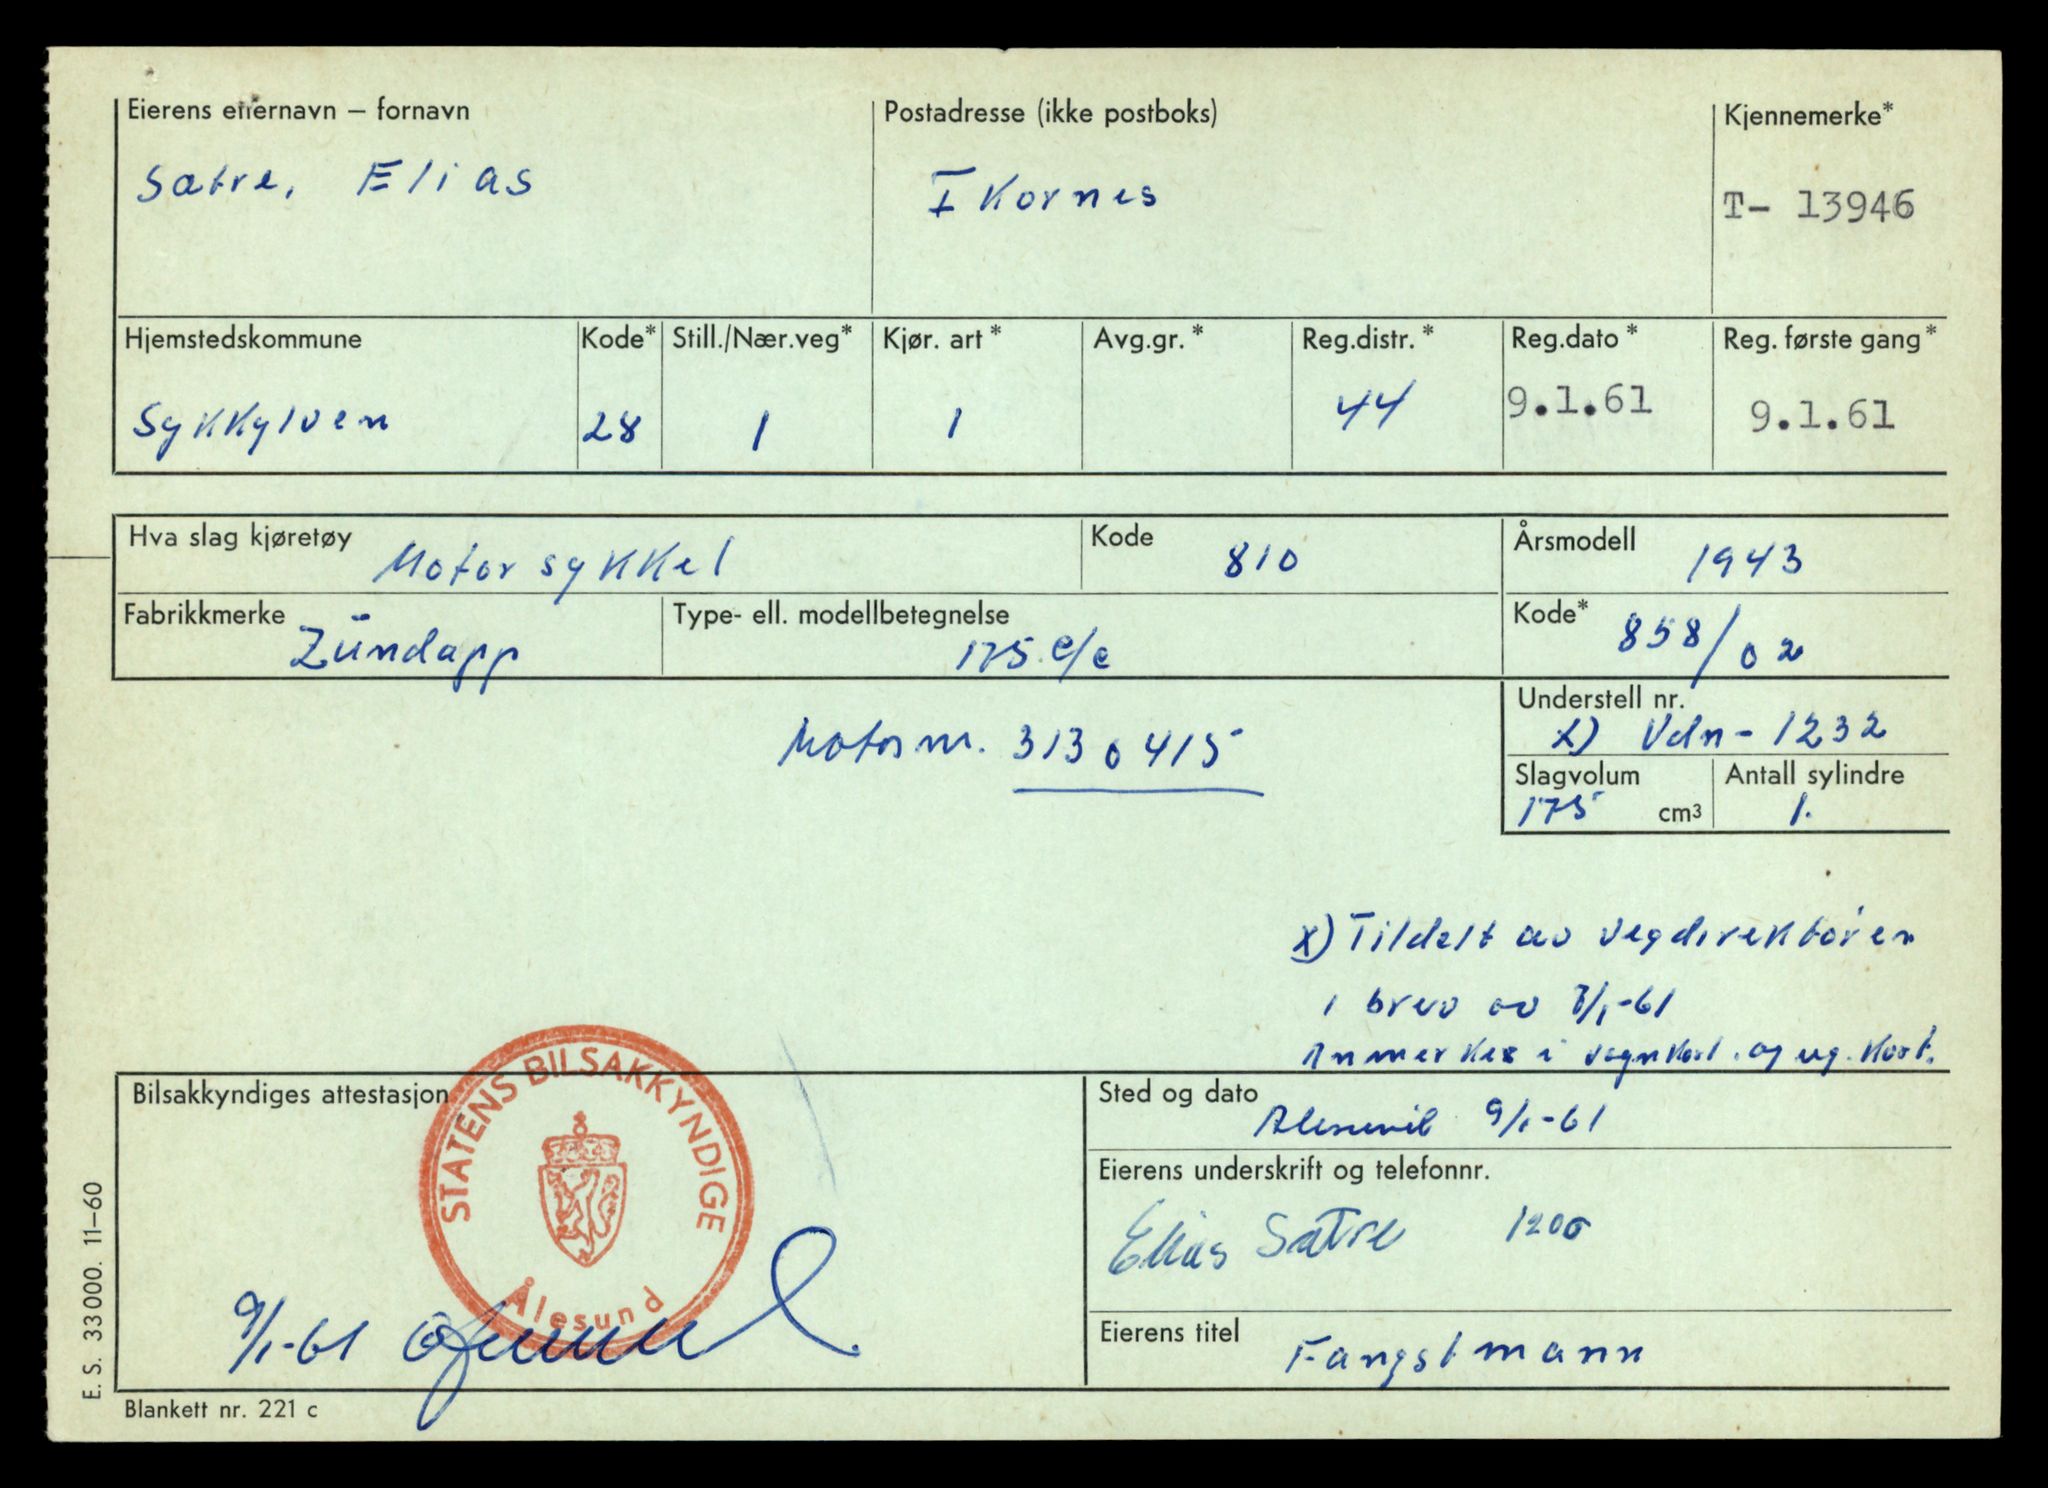 Eierens etternavn – fornavn
Sætre, Elias
Postadresse (ikke postboks)
Ikornes
Kjennemerke*
T- 13946
Hjemstedskommune
Sykkylven
Kode*
28
Still./Nær.veg*
1
Kjør. art*
1
Avg.gr.*
Reg.distr.*
44
Reg.dato*
9.1.61
Reg. første gang*
9.1.61
Hva slag kjøretøy
Motorsykkel
Kode
810
Årsmodell
1943
Fabrikkmerke
Zündapp
Type- ell. modellbetegnelse
175 c/c
Kode*
858/02
Understell nr.
x) Vdn-1232
Motornr. 3130415
Slagvolum
175 cm3
Antall sylindre
1.
x) Tildelt av Vegdirektøren
i brev av 7/1-61
Anmerkes i vognkort og reg. kort.
Bilsakkyndiges attestasjon
STATENS BILSAKKYNDIGE
Ålesund
9/1-61
Sted og dato
Ålesund 9/1-61
Eierens underskrift og telefonnr.
Elias Sætre 1200
Eierens titel
Fangstmann
E. S. 33 000. 11–60
Blankett nr. 221 c